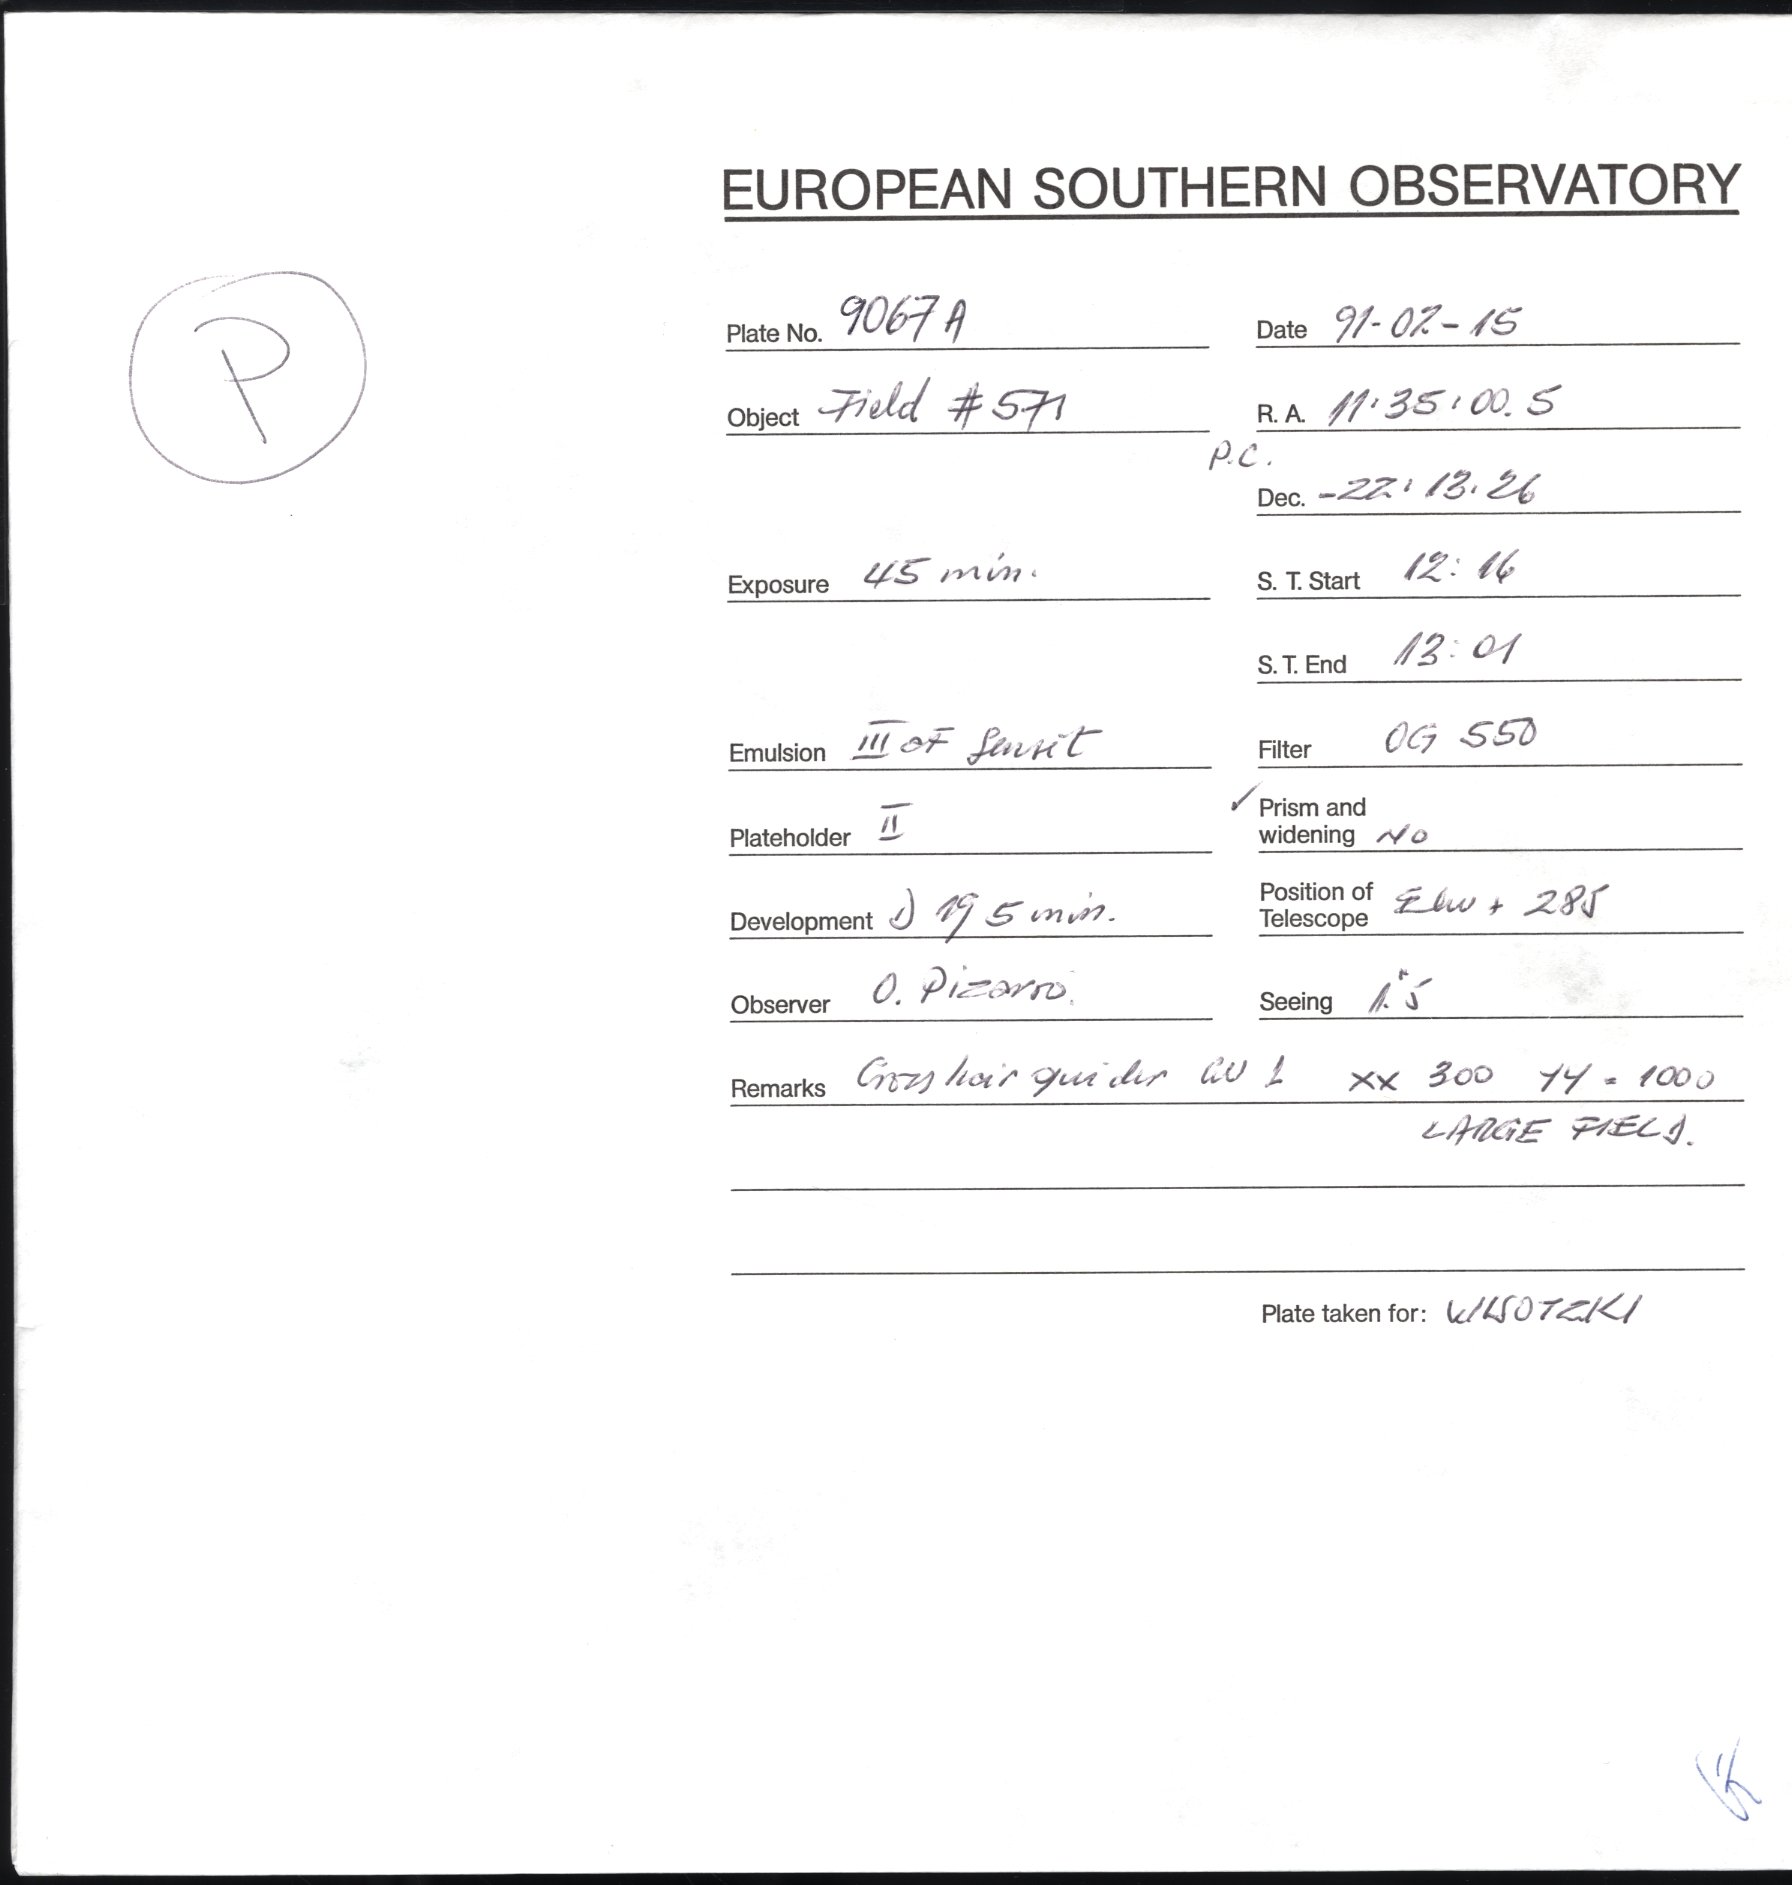 EUROPEAN SOUTHERN OBSERVATORY
P
Plate No. 9067 A
Date 91-02-15
Object Field #571
R. A. 11:35:00.5
P.C.
Dec. -22:13:26
Exposure 45 min.
S. T. Start 12:16
S. T. End 13:01
Emulsion III aF Sensit
Filter OG 550
Plateholder II
✓ Prism and
widening NO
Development 1) 19 5 min.
Position of
Telescope + 285
Observer O. Pizarro.
Seeing 1."5
Remarks Cross hair guider xx 300 yy = 1000
LARGE FIELD.
Plate taken for: WISOTZKI